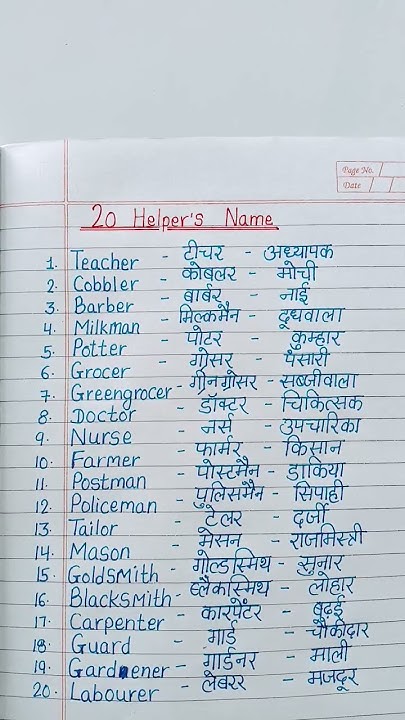 Page No.
Date
20 Helper's Name
1. Teacher - टीचर - अध्यापक
2. Cobbler - कोबलर - मोची
3. Barber - बार्बर - नाई
4. Milkman - मिल्कमैन - दूधवाला
5. Potter - पोटर - कुम्हार
6. Grocer - ग्रोसर - पंसारी
7. Greengrocer - ग्रीनग्रोसर - सब्जीवाला
8. Doctor - डॉक्टर - चिकित्सक
9. Nurse - नर्स - उपचारिका
10. Farmer - फार्मर - किसान
11. Postman - पोस्टमैन - डाकिया
12. Policeman - पुलिसमैन - सिपाही
13. Tailor - टेलर - दर्जी
14. Mason - मेसन - राजमिस्त्री
15. Goldsmith - गोल्डस्मिथ - सुनार
16. Blacksmith - ब्लैकस्मिथ - लोहार
17. Carpenter - कारपेंटर - बूढ़ई
18. Guard - गार्ड - चौकीदार
19. Gardener - गार्डनर - माली
20. Labourer - लेबरर - मजदूर